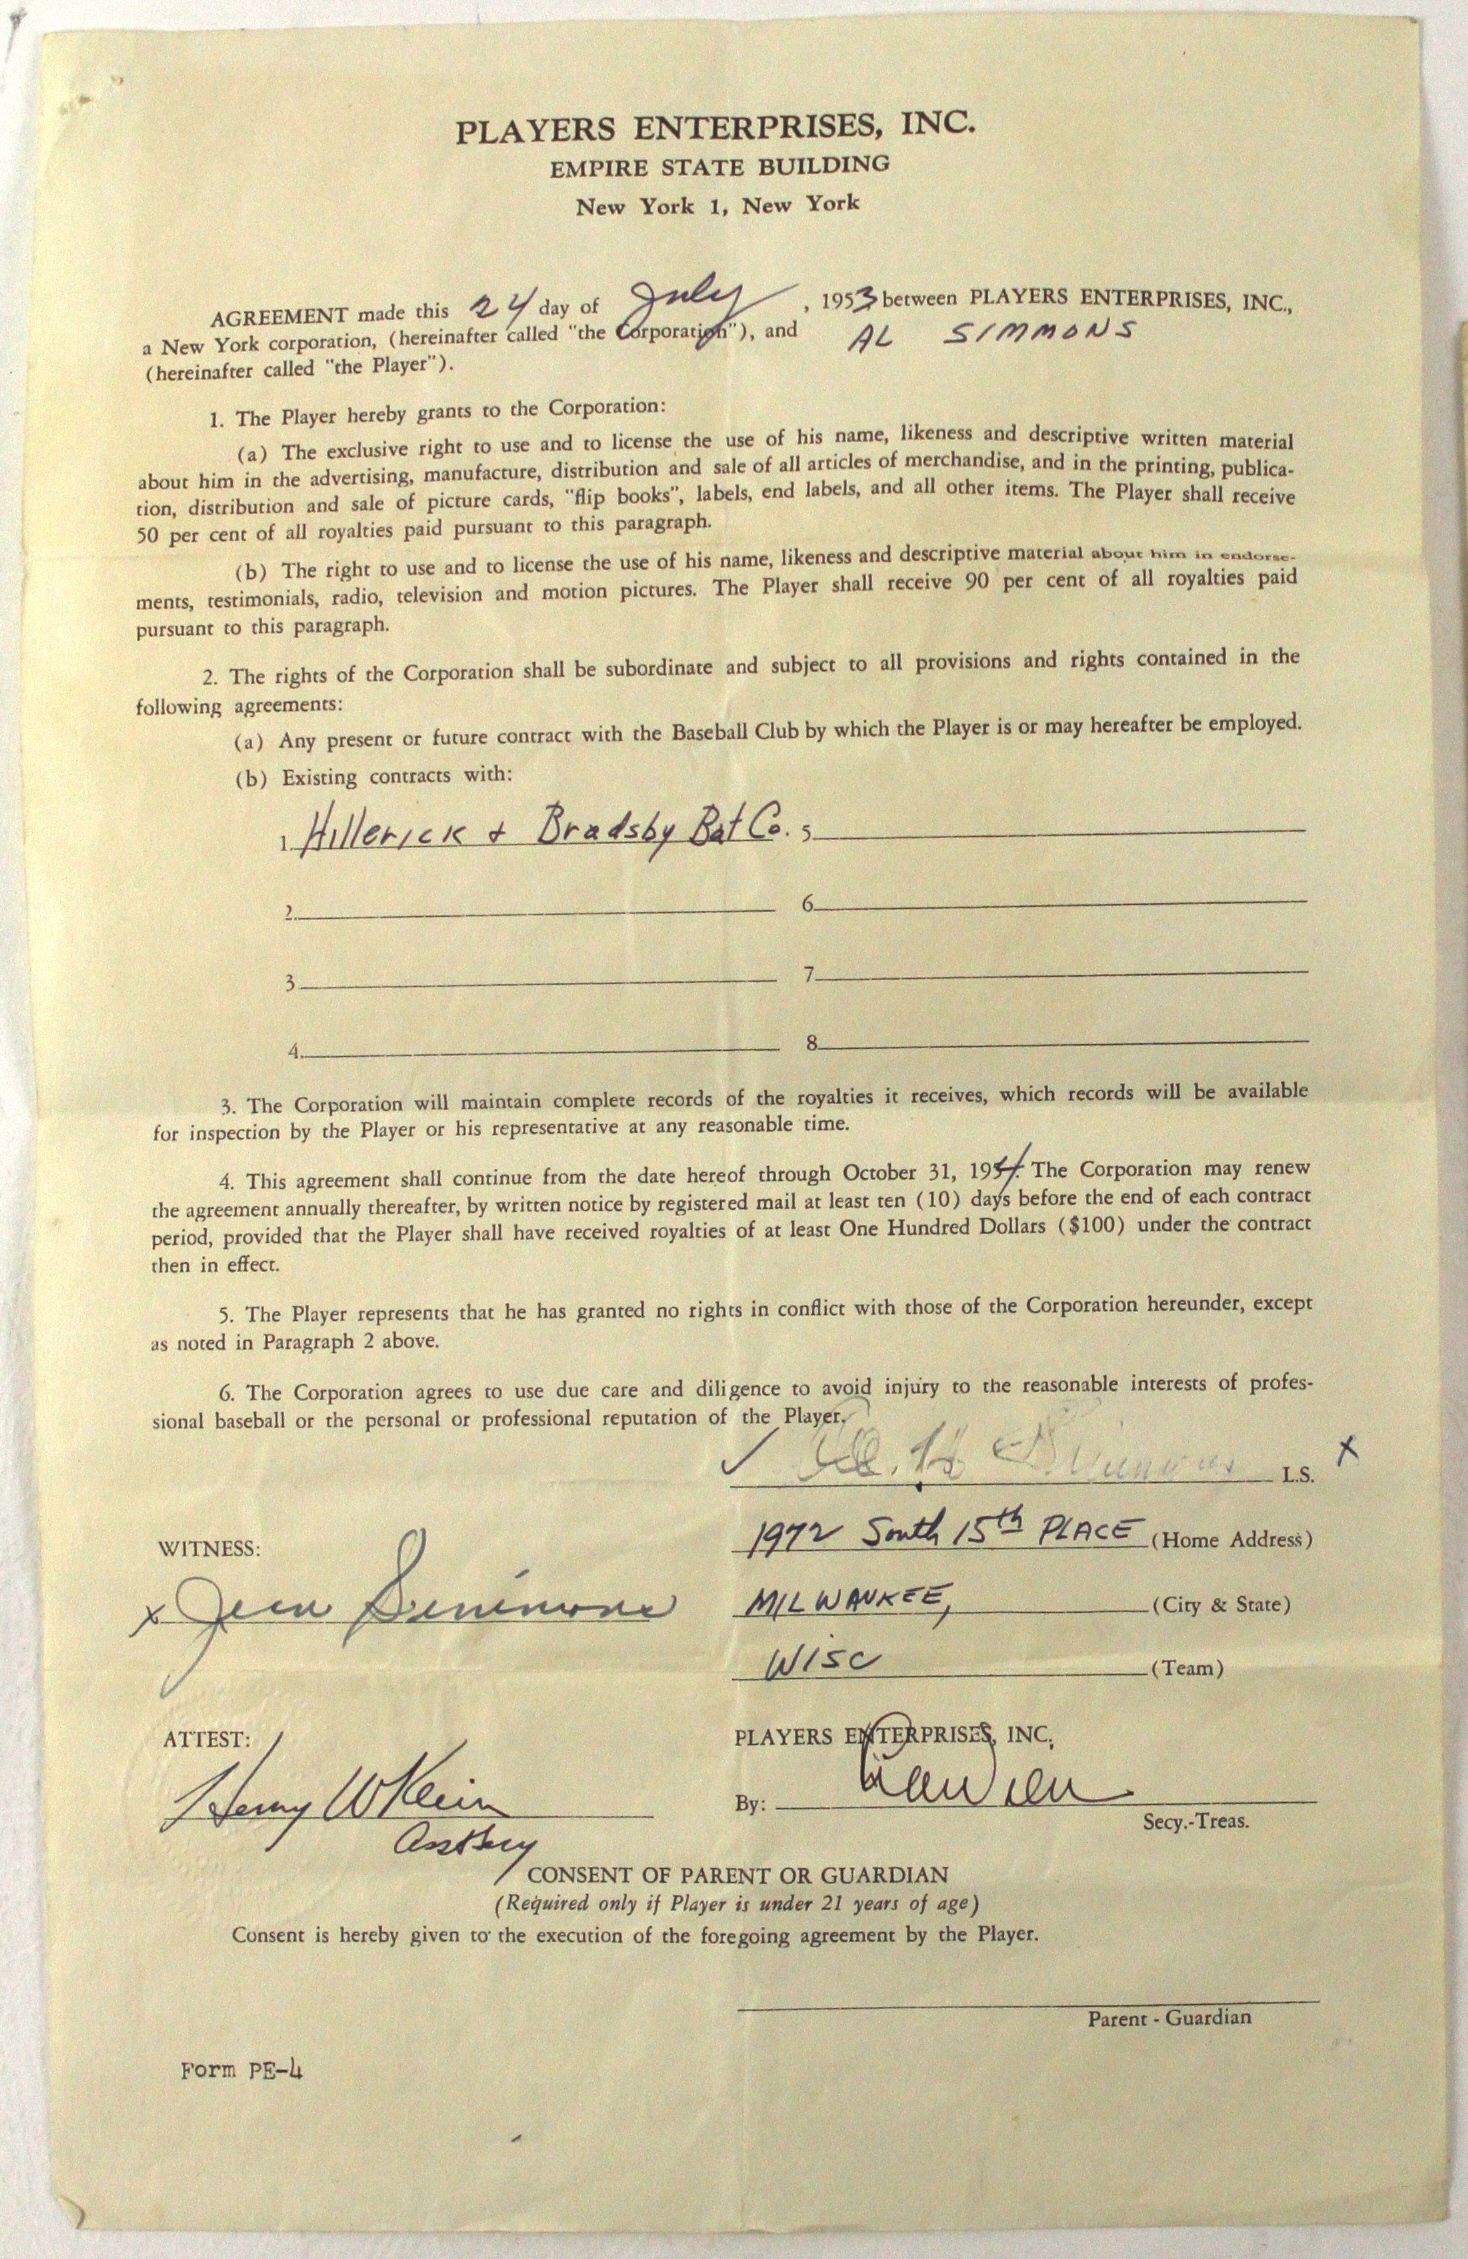 PLAYERS ENTERPRISES, INC.
EMPIRE STATE BUILDING
New York 1, New York
AGREEMENT made this 24 day of July, 1953 between PLAYERS ENTERPRISES, INC.,
a New York corporation, (hereinafter called "the Corporation"), and AL SIMMONS
(hereinafter called "the Player").
1. The Player hereby grants to the Corporation:
(a) The exclusive right to use and to license the use of his name, likeness and descriptive written material
about him in the advertising, manufacture, distribution and sale of all articles of merchandise, and in the printing, publica-
tion, distribution and sale of picture cards, "flip books", labels, end labels, and all other items. The Player shall receive
50 per cent of all royalties paid pursuant to this paragraph.
(b) The right to use and to license the use of his name, likeness and descriptive material about him in endorse-
ments, testimonials, radio, television and motion pictures. The Player shall receive 90 per cent of all royalties paid
pursuant to this paragraph.
2. The rights of the Corporation shall be subordinate and subject to all provisions and rights contained in the
following agreements:
(a) Any present or future contract with the Baseball Club by which the Player is or may hereafter be employed.
(b) Existing contracts with:
1. Hillerick + Bradsby Bat Co. 5
2. 6
3 7
4. 8
3. The Corporation will maintain complete records of the royalties it receives, which records will be available
for inspection by the Player or his representative at any reasonable time.
4. This agreement shall continue from the date hereof through October 31, 1954. The Corporation may renew
the agreement annually thereafter, by written notice by registered mail at least ten (10) days before the end of each contract
period, provided that the Player shall have received royalties of at least One Hundred Dollars ($100) under the contract
then in effect.
5. The Player represents that he has granted no rights in conflict with those of the Corporation hereunder, except
as noted in Paragraph 2 above.
6. The Corporation agrees to use due care and diligence to avoid injury to the reasonable interests of profes-
sional baseball or the personal or professional reputation of the Player.
Simmons L.S. X
1972 South 15th PLACE (Home Address)
WITNESS:
x Simmons
MILWAUKEE, (City & State)
WISC (Team)
ATTEST:
PLAYERS ENTERPRISES, INC.
Henry W Klein
By:
Secy.-Treas.
CONSENT OF PARENT OR GUARDIAN
(Required only if Player is under 21 years of age)
Consent is hereby given to the execution of the foregoing agreement by the Player.
Parent - Guardian
Form PE-4